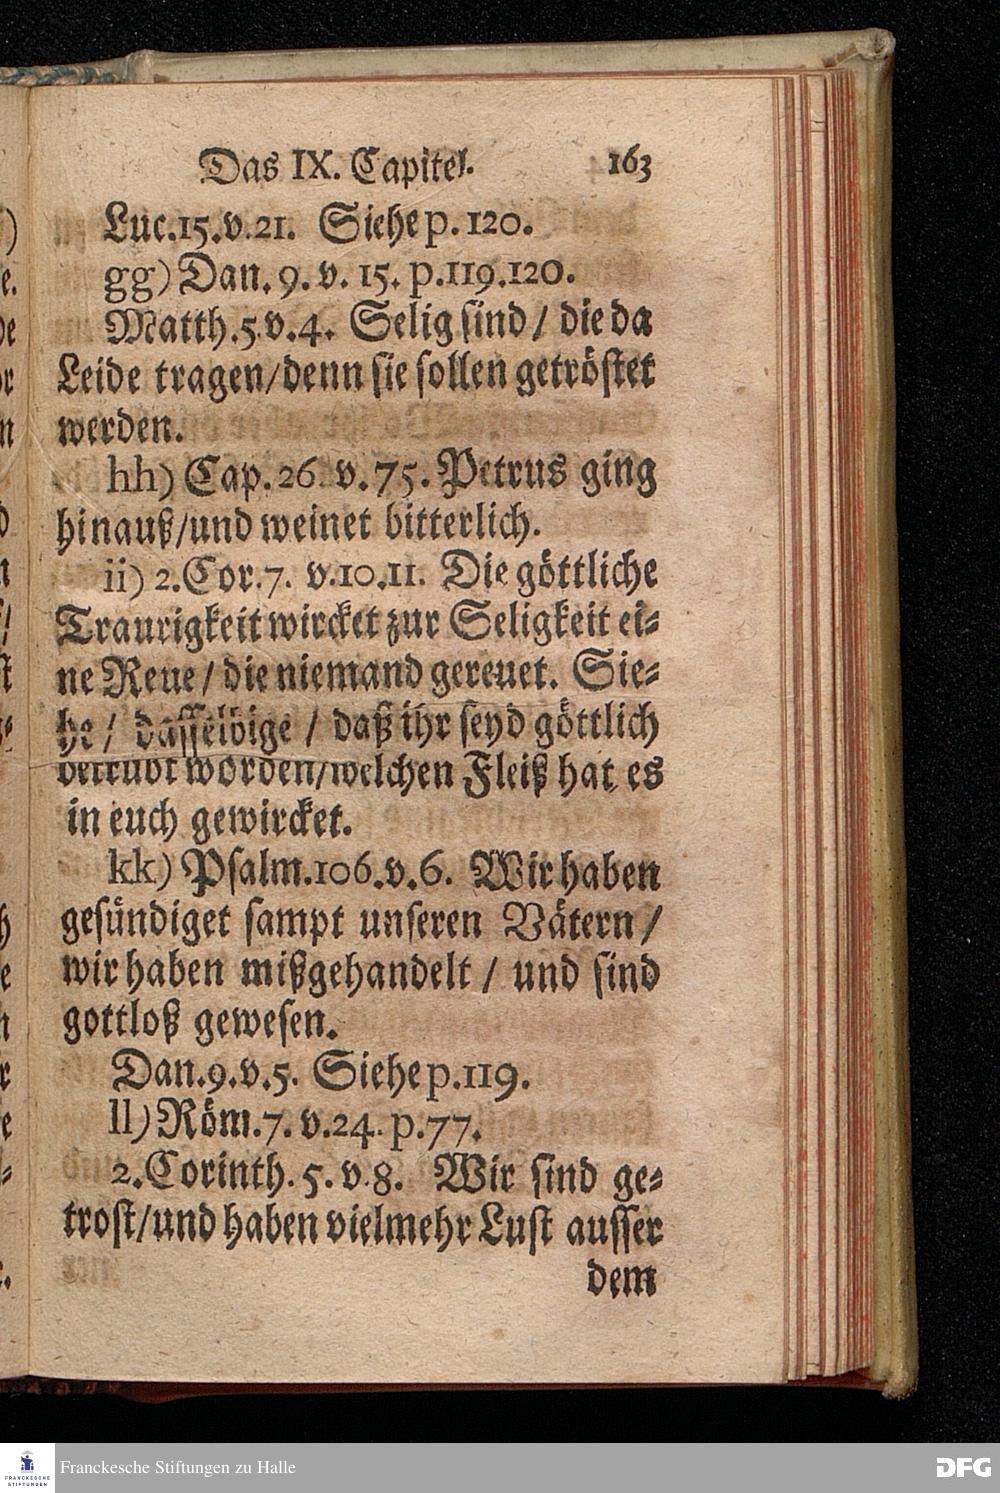 Das IX. Capitel. 163
Luc.15.v.21. Siehe p. 120.
gg) Dan. 9. v. 15. p.119.120.
Matth.5.v.4. Selig sind / die da
Leide tragen/denn sie sollen getröstet
werden.
hh) Cap.26. v. 75. Petrus ging
hinauß/und weinet bitterlich.
ii) 2.Cor.7. v.10.11. Die göttliche
Traurigkeit wircket zur Seligkeit ei-
ne Reue / die niemand gereuet. Sie-
he / dasselbige / daß ihr seyd göttlich
betrübt worden/welchen Fleiß hat es
in euch gewircket.
kk) Psalm.106.v.6. Wir haben
gesündiget sampt unseren Vätern /
wir haben mißgehandelt / und sind
gottloß gewesen.
Dan.9.v.5. Siehe p.119.
ll) Röm.7. v.24. p.77.
2.Corinth. 5. v.8. Wir sind ge-
trost/und haben vielmehr Lust ausser
dem
FRANCKESCHE
STIFTUNGEN
Franckesche Stiftungen zu Halle
DFG